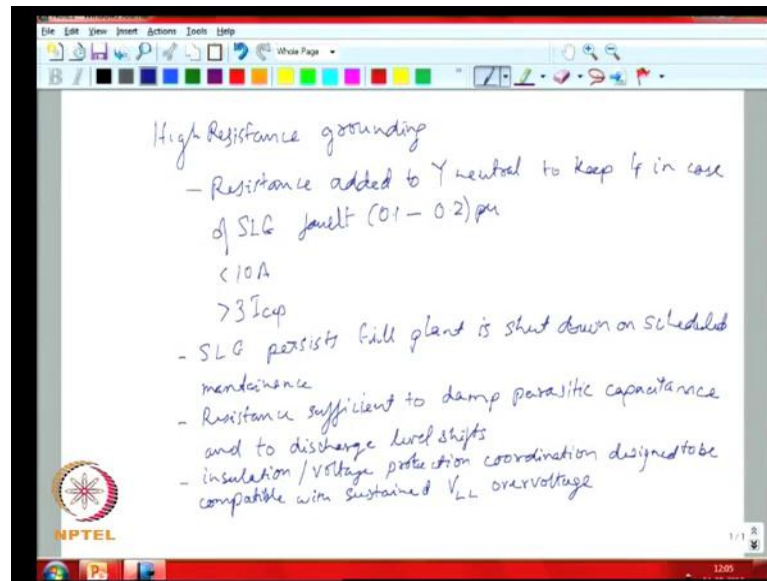 File Edit View Insert Actions Tools Help
Whole Page
B I
High Resistance grounding
- Resistance added to Y neutral to keep If in case
of SLG fault (0.1 - 0.2) pu
< 10A
> 3 Icap
- SLG persists till plant is shut down on scheduled
maintainence
- Resistance sufficient to damp parasitic capacitance
and to discharge level shifts
- insulation / voltage protection coordination designed to be
compatible with sustained VLL overvoltage
NPTEL
1/1
12:05